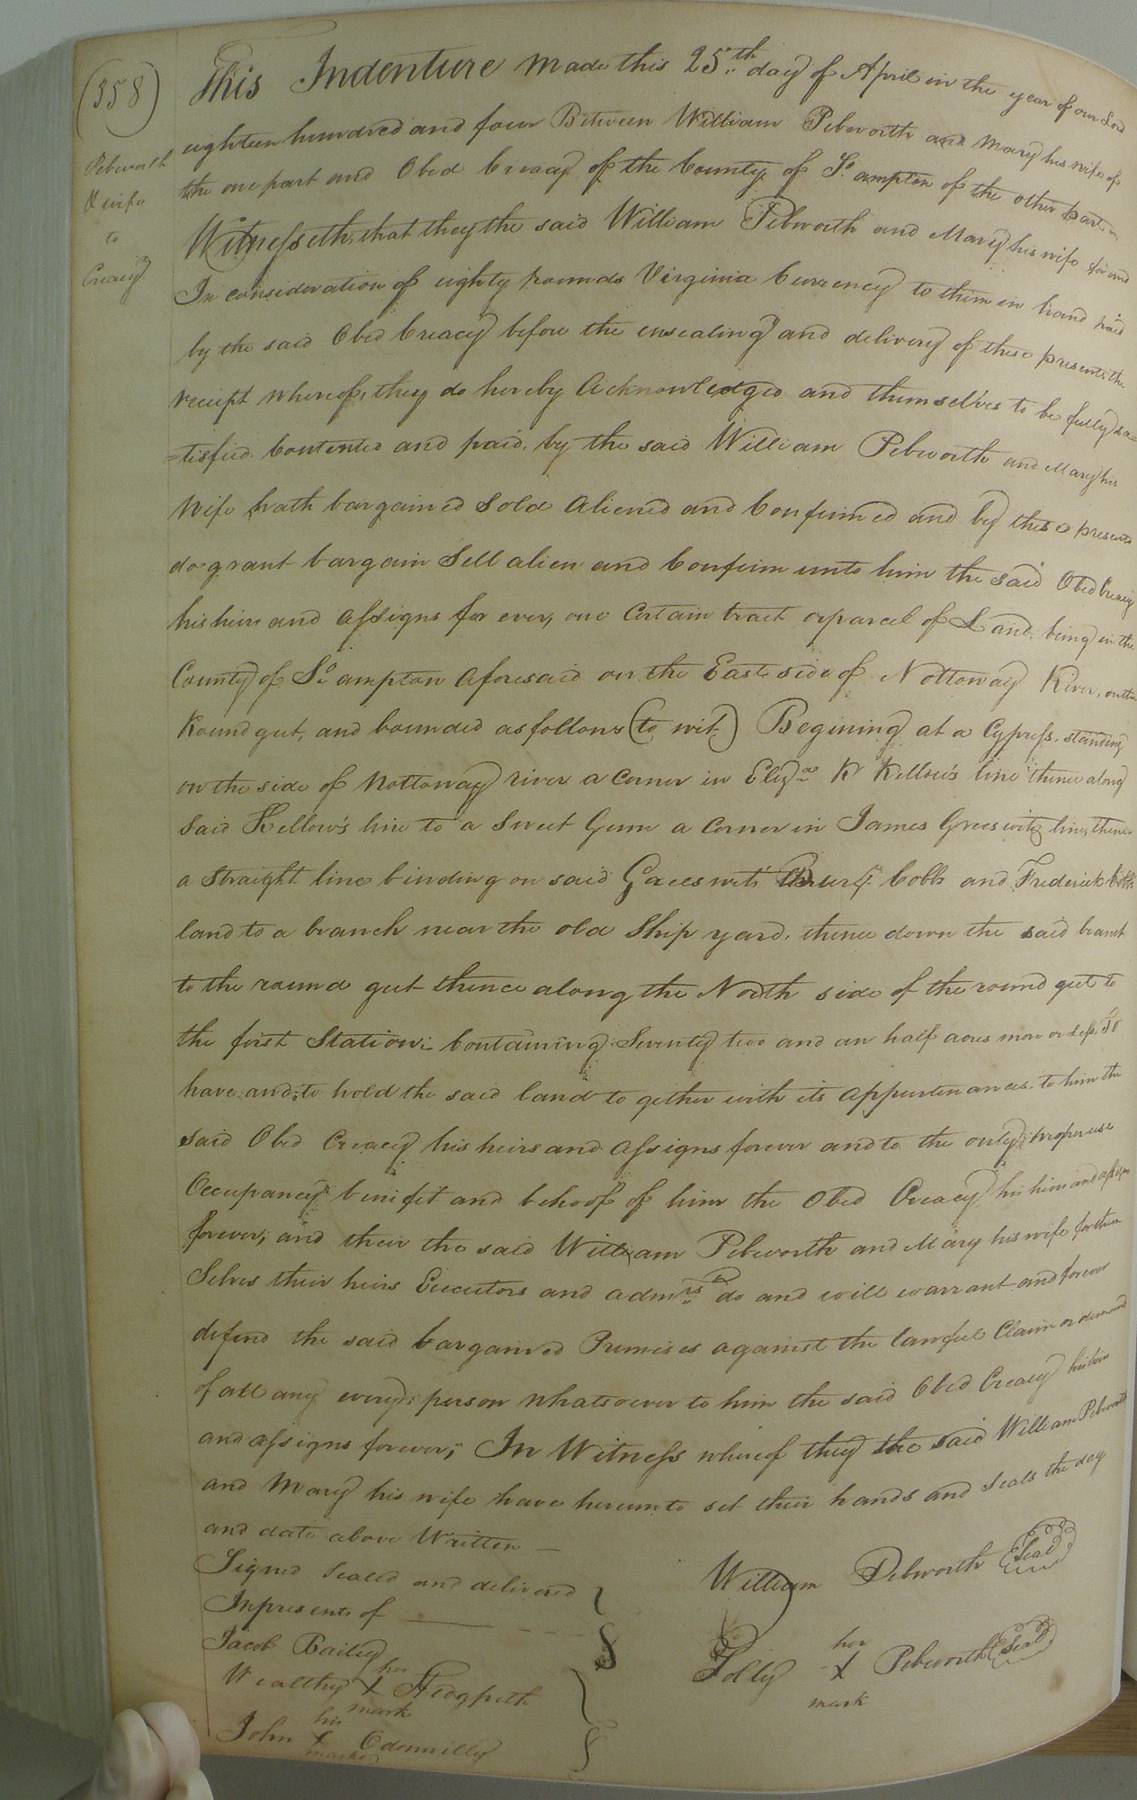 (358)
Pebworth
& wife
to
Creacy
This Indenture made this 25.th day of April in the year of our Lord
eighteen hundred and four Between William Pebworth and Mary his wife of
the one part and Obed Creacy of the County of So.ampton of the other part
Witnesseth, that they the said William Pebworth and Mary his wife for and
In consideration of eighty pounds Virginia Currency to them in hand paid
by the said Obed Creacy before the ensealing and delivery of these presents, the
receipt whereof, they do hereby Acknowledged and themselves to be fully sa
=tisfied Contented and paid, by the said William Pebworth and Mary his
Wife hath bargained Sold Aliened and Confirmed and by these presents
do grant bargain Sell alien and Confirm unto him the said Obed Creacy
his heirs and Assigns for ever, one Certain tract or parcel of Land being in the
County of So.ampton Aforesaid on the East side of Nottoway River, on the
Round gut, and bounded as follows (to wit) Begining at a Cypress, standing
on the side of Nottoway river a Corner in Eliz.a K Kellow's line thence along
Said Kellow's line to a Sweet Gum a Corner in James Greeswits line, thence
a Straight line binding on said Greeswits Cobbs and Frederick Cobbs
land to a branch near the old Ship yard, thence down the said branch
to the round gut thence along the North side of the round gut to
the first Station: Containing Seventy two and an half acres more or less, To
have and to hold the said land to gether with its appurtenances to him the
Said Obed Creacy his heirs and Assigns forever and to the only proper use
Occupancy benifit and behoof of him the Obed Creacy his heirs and assigns
forever, and their the said William Pebworth and Mary his wife for them
Selves their heirs Executors and adm.rs do and will warrant and forever
defend the said bargained Premises against the lawful Claim or demand
of all any every person whatsoever to him the said Obed Creacy his heirs
and assigns forever, In Witness whereof they the said William Pebworth
and Mary his wife have hereunto set their hands and Seals the day
and date above Written —
Signed Sealed and delivered
In presents of
William Pebworth (Seal)
Jacob Bailey
her
Polly X Pebworth (Seal)
mark
her
Wealthy X Hedgpeth
mark
his
John X Odonnilly
marke